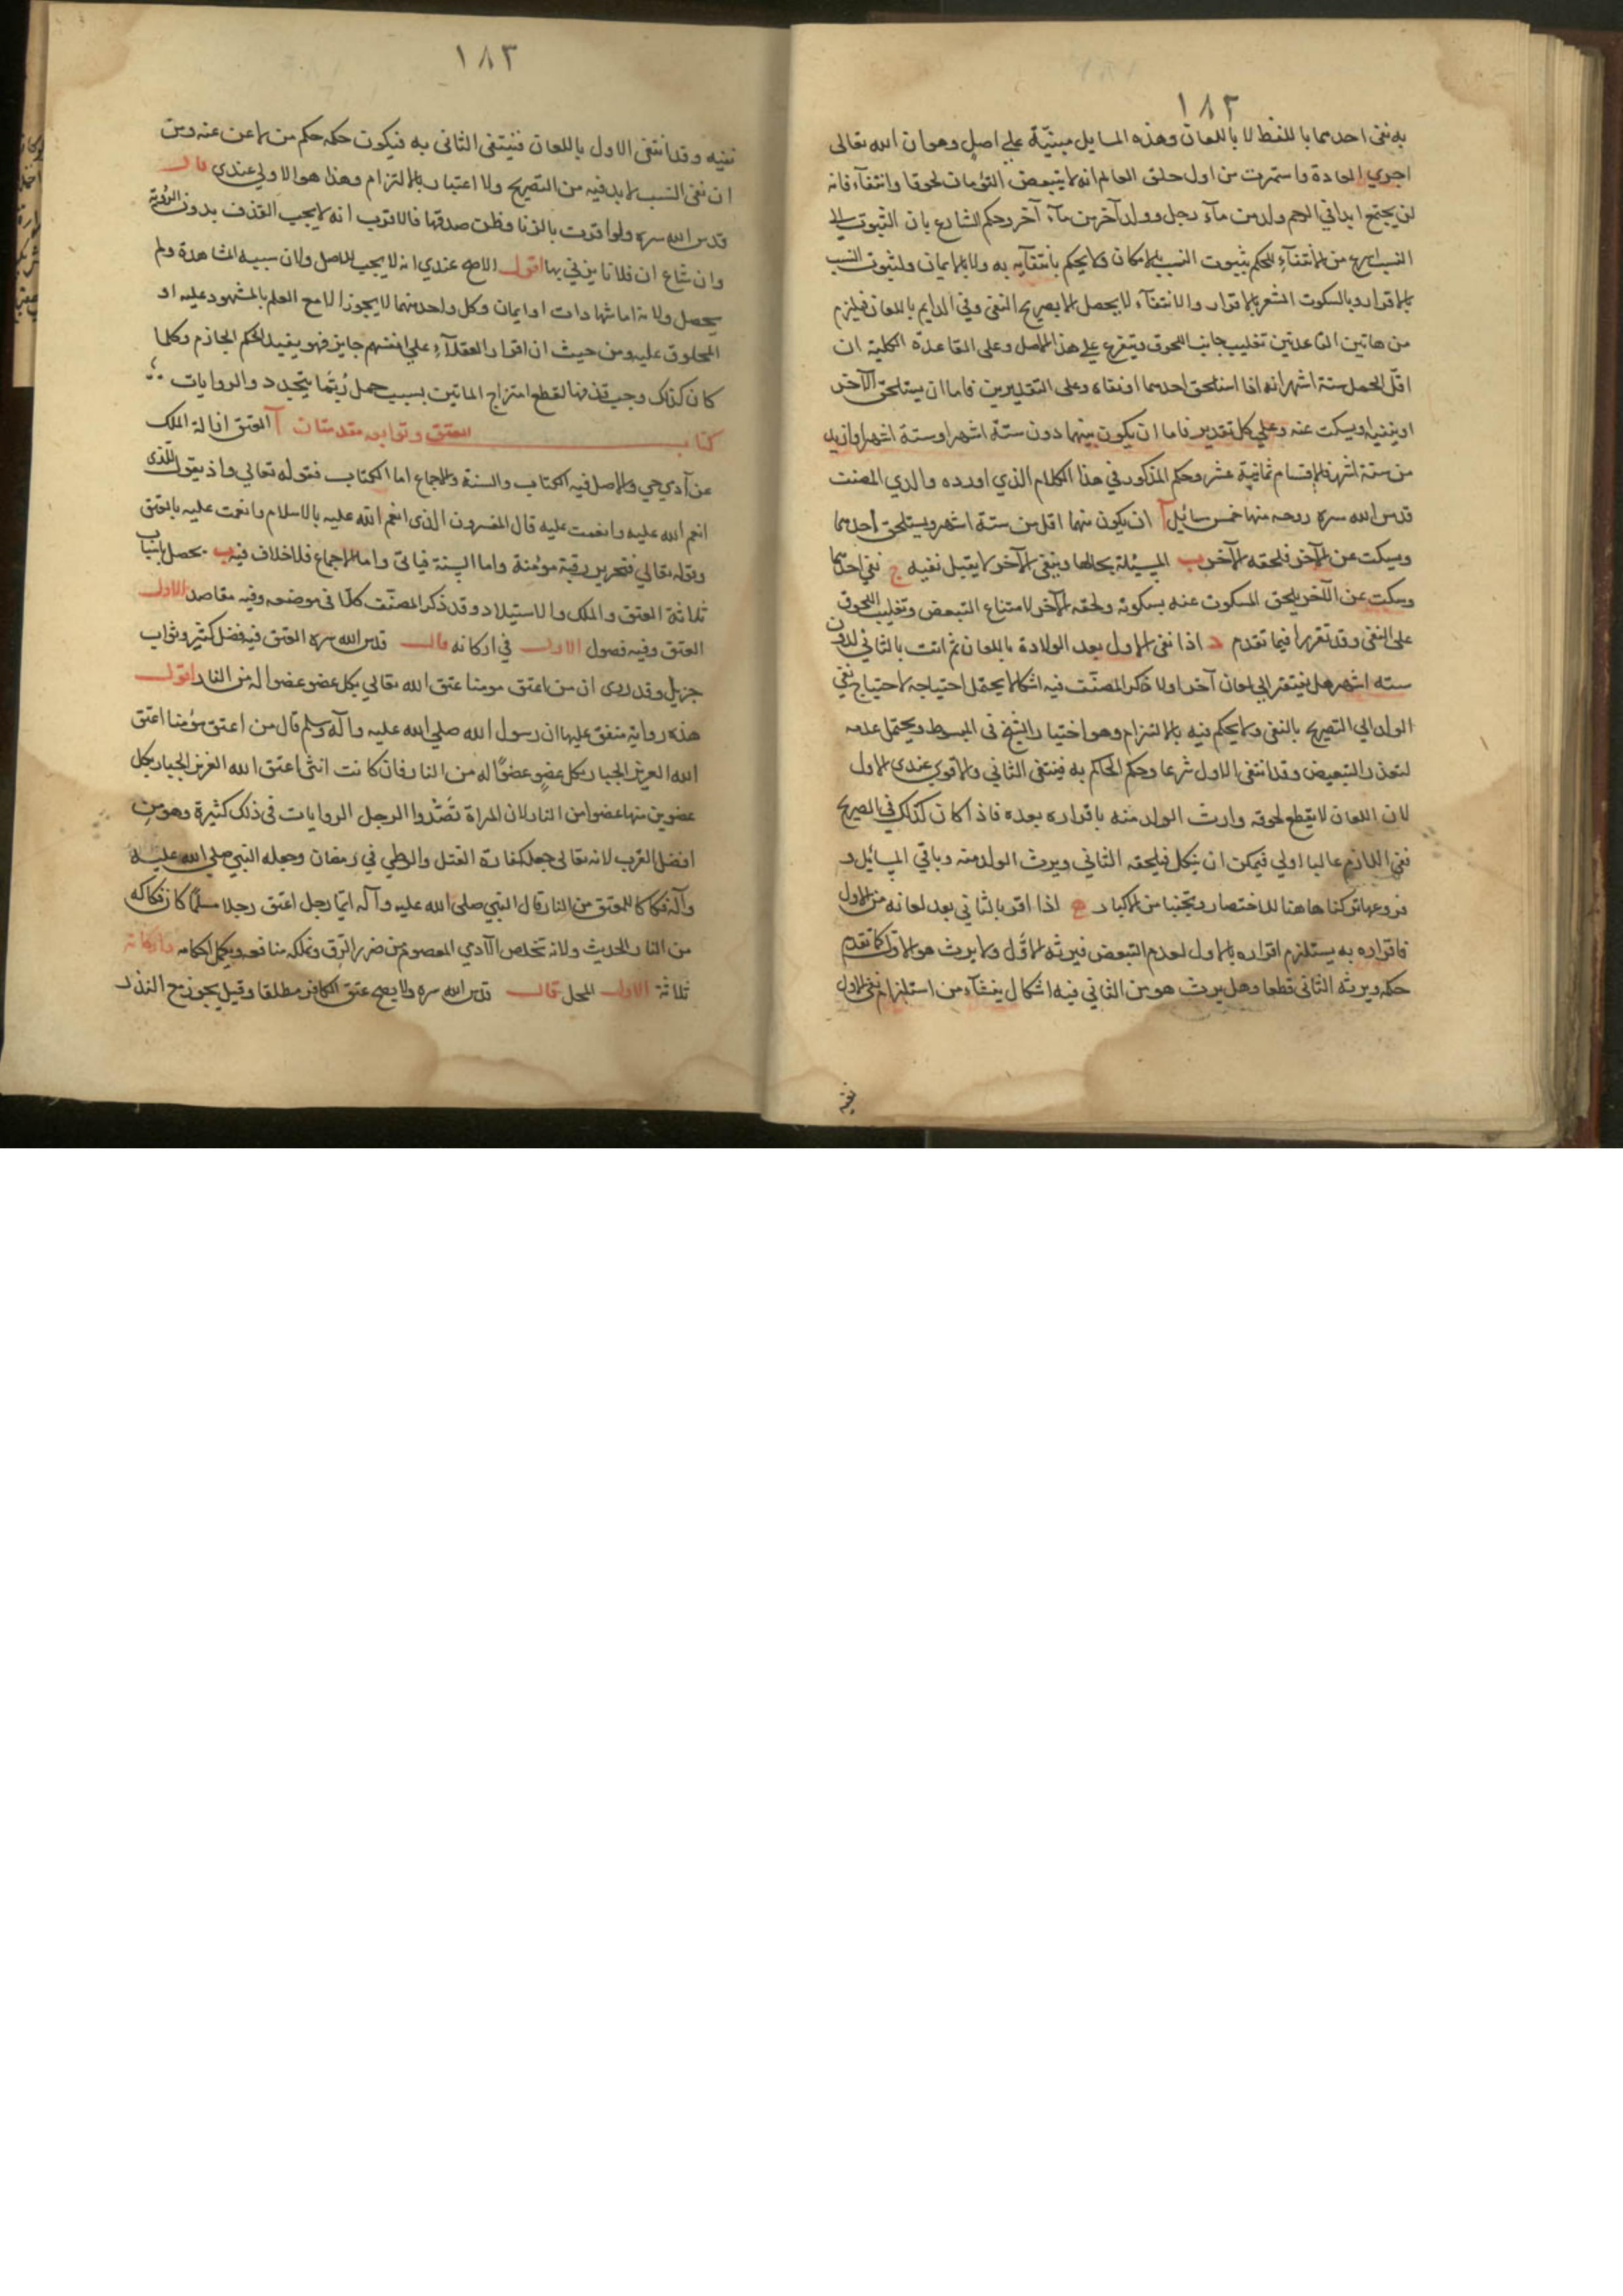 ١٨٢
به نفى احدهما باللفظ لا باللعان وهذه المسايل مبنيّة على اصل وهو ان الله تعالى
اجرى العادة واستمرت من اول خلق العالم انه لا يتبعض التؤمان لحوقا وانتفآء فانه
لن يجتمع ابدا في الرحم ولد من مآء رجل وولد آخر من مآء آخر وحكم الشارع بان الثبوت في
النسب اسرع من الانتفآء للحكم بثبوت النسب بالامكان ولا يحكم بانتفآيه به ولا بالايمان ولثبوت النسب
بالاقرار وبالسكوت المشعر بالاقرار والانتفآء لا يحصل الا بصريح النفى وفي الدايم باللعان فيلزم
من هاتين القاعدتين تغليب جانب اللحوق ويتفرع على هذا الاصل وعلى القاعدة الكلية ان
اقلّ الحمل ستة اشهر انه اذا استلحق احدهما او نفاه وعلى التقديرين فاما ان يستلحق الآخر
او ينفيه او يسكت عنه وعلى كل تقدير فاما ان يكون بينهما دون ستة اشهر او ستة اشهر او ازيد
من ستة اشهر فالاقسام ثمانية عشر وحكم المذكور في هذا الكلام الذي اورده والدي المصنف
قدس الله سره روحه منها خمس مسائل آ ان يكون بينهما اقل من ستة اشهر ويستلحق احدهما
ويسكت عن الآخر فيلحقه الآخر ب المسئلة بحالها وينفى الآخر لا يقبل نفيه ج نفى احدهما
وسكت عن الآخر يلحق المسكوت عنه بسكوته ولحقه الآخر لامتناع التبعض وتغليب اللحوق
على النفى وقد تقرر فيما تقدم د اذا نفى الاول بعد الولادة باللعان ثم اتت بالثاني لدون
سته اشهر هل يفتقر الى لعان آخر اولا ذكر المصنّف فيه اشكالا يحتمل احتياجه لاحتياج نفى
الولد الى التصريح بالنفى ولا يحكم فيه بالالتزام وهو اختيار الشيخ في المبسوط ويحتمل عدمه
لتعذر التبعيض وقد انتفى الاول شرعا وحكم الحاكم به فينتفى الثاني والاقوى عندى الاول
لان اللعان لا يقطع لحوقه وارث الولد منه باقراره بعده فاذا كان كذلك في الصريح
ففى اللازم غالبا اولى فيمكن ان ينكل فيلحقه الثاني ويرث الولد منه وباقي المسائل و
فروعها تركناها هنا للاختصار وتجنبا من الاكثار ه اذا اقر بالثاني بعد لعانه من الاول
فاقراره به يستلزم اقراره بالاول لعدم التبعض فيرثه الاوّل ولا يرث هو الاوّل كما تقدم
حكمه ويرثه الثاني قطعا وهل يرث هو من الثاني فيه اشكال ينشآء من استلزام نفى الاول
نفيه
١٨٣
نفيه وقد انتفى الاول باللعان فينتفى الثاني به فيكون حكمه حكم من لاعن عنه ومن
ان نفى النسب لا بد فيه من التصريح ولا اعتبار بالالتزام وهذا هو الاولى عندى قال
قدس الله سره ولو اقرت بالزنا وظن صدقها فالاقرب انه لا يجب القذف بدون الرؤية
وان شاع ان فلانا يزني بها اقول الاصح عندي انه لا يجب للاصل ولان سببه المشاهدة ولم
يحصل ولانه اما شهادات او ايمان وكل واحد منهما لا يجوز الا مع العلم بالمشهود عليه او
المحلوف عليه ومن حيث ان اقرار العقلآء على انفسهم جايز فهو يفيد الحكم الجازم وكلما
كان كذلك وجب قذفها لقطع امتزاج المائين بسبب حمل ربّما يتجدد والروايات
كتاب العتق وتوابعه مقدمتان آ العتق ازالة الملك
عن آدمي حي والاصل فيه الكتاب والسنة والاجماع اما الكتاب فقوله تعالى واذ تقول للذى
انعم الله عليه وانعمت عليه قال المفسرون الذى انعم الله عليه بالاسلام وانعمت عليه بالعتق
وقوله تعالى فتحرير رقبة مؤمنة واما السنة فياتى واما الاجماع فلا خلاف فيه ب يحصل باسباب
ثلاثة العتق والملك والاستيلاد وقد ذكر المصنّف كلّا في موضعه وفيه مقاصد الاول
العتق وفيه فصول الاول في اركانه قال قدس الله سره العتق فيه فضل كثير وثواب
جزيل وقد روى ان من اعتق مومنا عتق الله تعالى بكل عضو عضوا له من النار اقول
هذه رواية متفق عليها ان رسول الله صلى الله عليه وآله وسلم قال من اعتق مؤمنا اعتق
الله العزيز الجبار بكل عضوٍ عضوًا له من النار فان كانت انثى اعتق الله العزيز الجبار بكل
عضوين منها عضوا من النار لان المراة نصف الرجل والروايات في ذلك كثيرة وهو من
افضل القرب لانه تعالى جعله كفارة القتل والوطي في رمضان وجعله النبي صلى الله عليه
وآله فكاكا للمعتق من النار قال النبي صلى الله عليه وآله ايّما رجل اعتق رجلا مسلمًا كان فكاكه
من النار الحديث ولانه تخلص الآدمي المعصوم من ضرر الرّق وتملكه منافعه ويكمل احكامه واركانه
ثلاثة الاول المحل قال قدس الله سره ولا يصح عتق الكافر مطلقا وقيل يجوز مع النذر